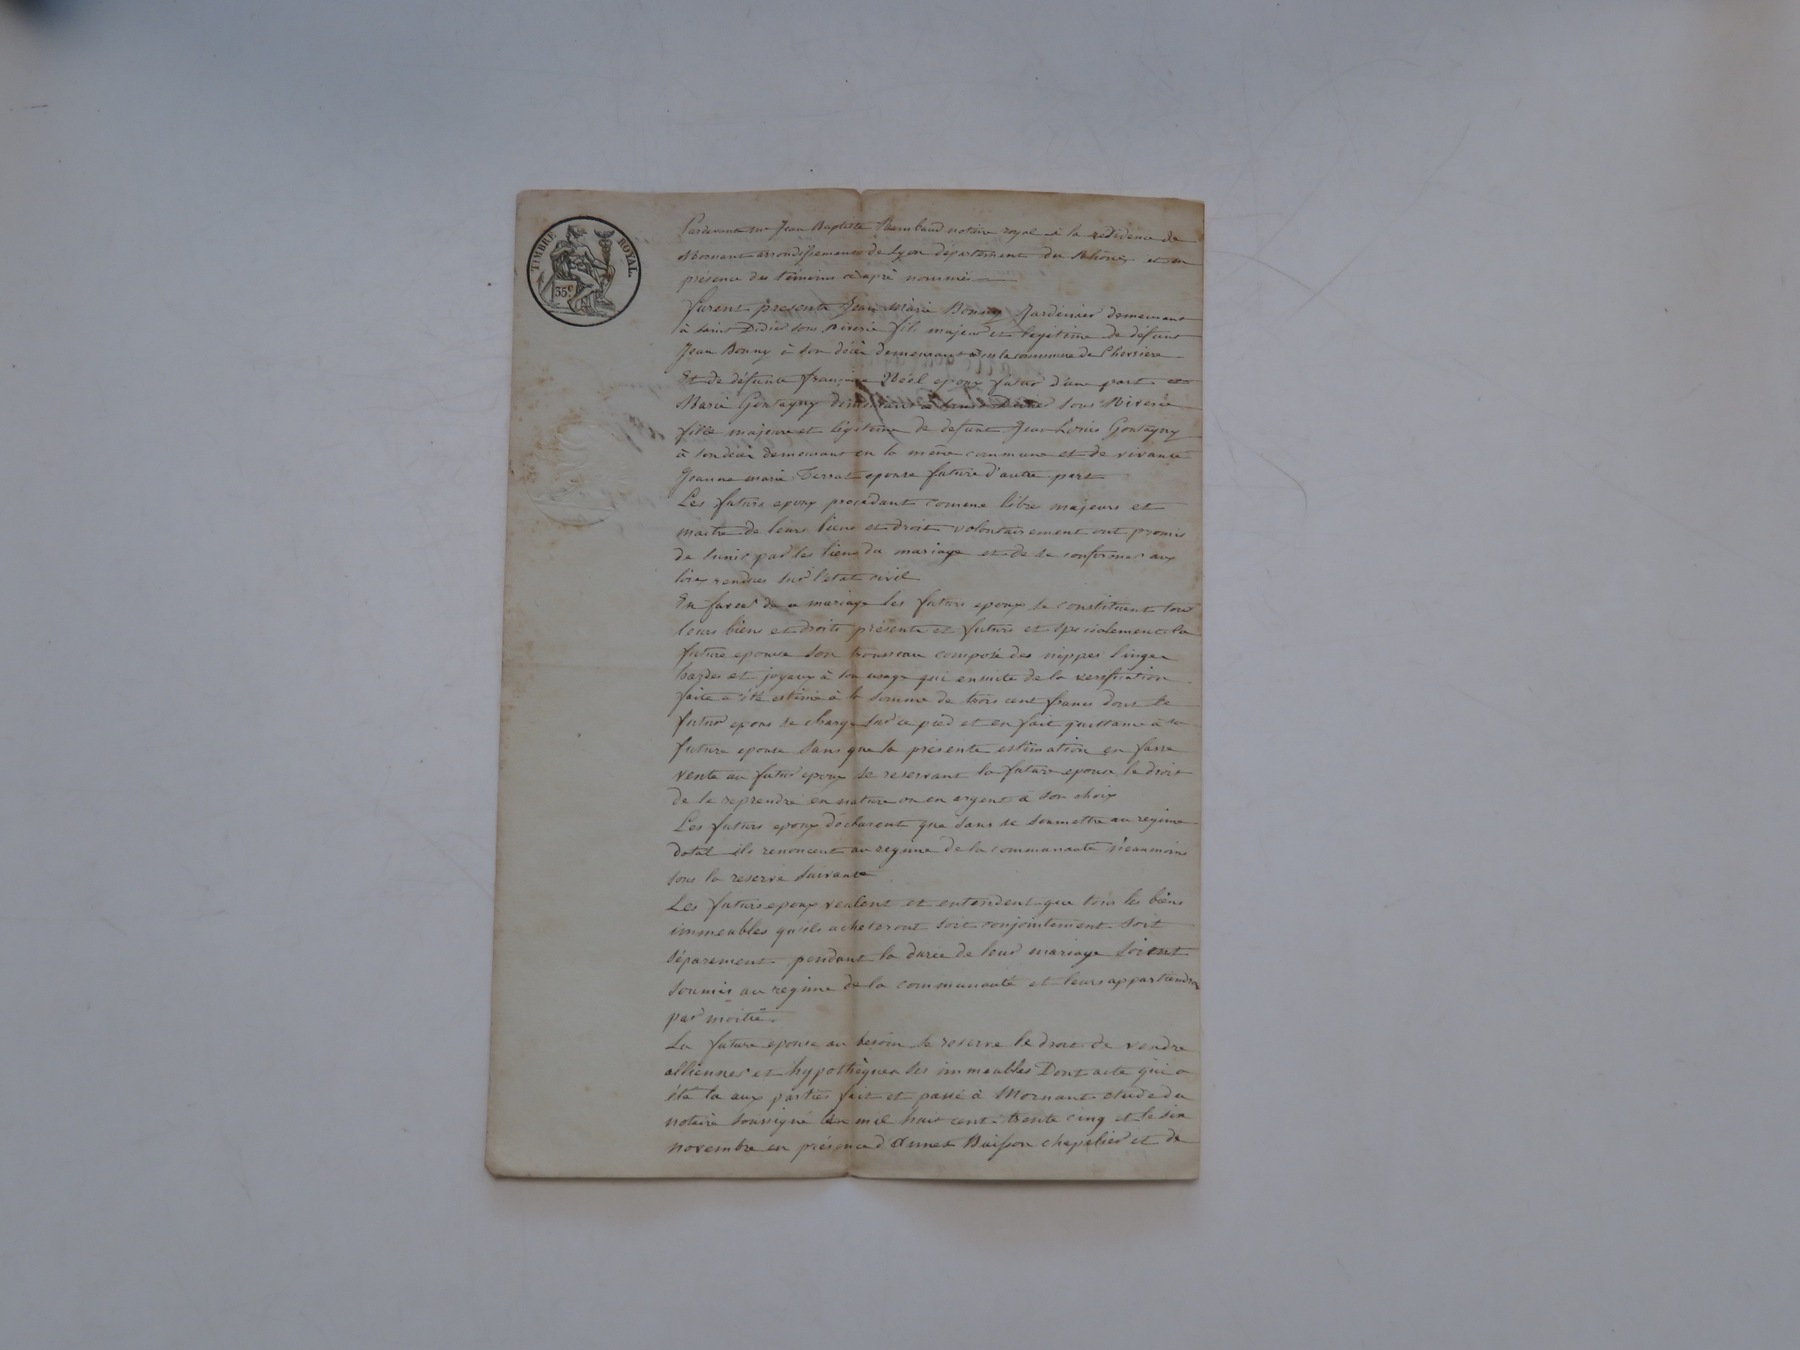 TIMBRE ROYAL.
35c
Pardevant me Jean Baptiste Rambaud notaire royal à la residence de
Mornant arrondissement de Lyon département du Rhône et en
présence des témoins ci après nommés
furent présents Jean Marie Bonny Jardinier demeurant
à Saint Didier sous Riverie fils majeur et legitime de défunt
Jean Bonny à son décès demeurant en la commune de
Et de défunte françoise Néel epoux futur d'une part et
Marie Gontagny demeurant à Saint Didier sous Riverie
fille majeure et légitime de defunt Jean Louis Gontagny
à son décès demeurant en la même commune et de vivante
Jeanne marie Terrat epouse future d'autre part
Les futurs epoux procedant comme libre majeurs et
maitre de leurs biens et droit volontairement ont promis
de sunir par les liens du mariage et de se conformer aux
loix rendues sur l'etat civil
En faveur de ce mariage les futurs epoux se constituent tous
leurs biens et droits présents et futurs et specialement la
future epouse son trousseau composé des nippes linges
hardes et joyaux à son usage qui ensuite de la verification
faite a été estimé à la somme de trois cent francs dont le
futur epoux se charge sur ce pied et en fait quittance à sa
future epouse sans que la présente estimation en fasse
vente au futur epoux se reservant la future epouse le droit
de le reprendre en nature ou en argent à son choix
Les futurs epoux déclarent que sans se soumettre au regime
dotal ils renoncent au regime de la communauté néanmoins
sous la reserve suivante
Les futurs epoux veulent et entendent que tous les biens
immeubles qu'ils acheteront soit conjointement soit
séparement pendant la durée de leur mariage soient
soumis au regime de la communauté et leurs appartiendra
par moitié.
La future epouse au besoin se reserve le droit de vendre
allienner et hypothéquer ses immeubles Dont acte qui a
été lu aux parties fait et passé à Mornant etude du
notaire soussigné l'an mil huit cent trente cinq et le six
novembre en présence d'Annet Buisson chapelier et de